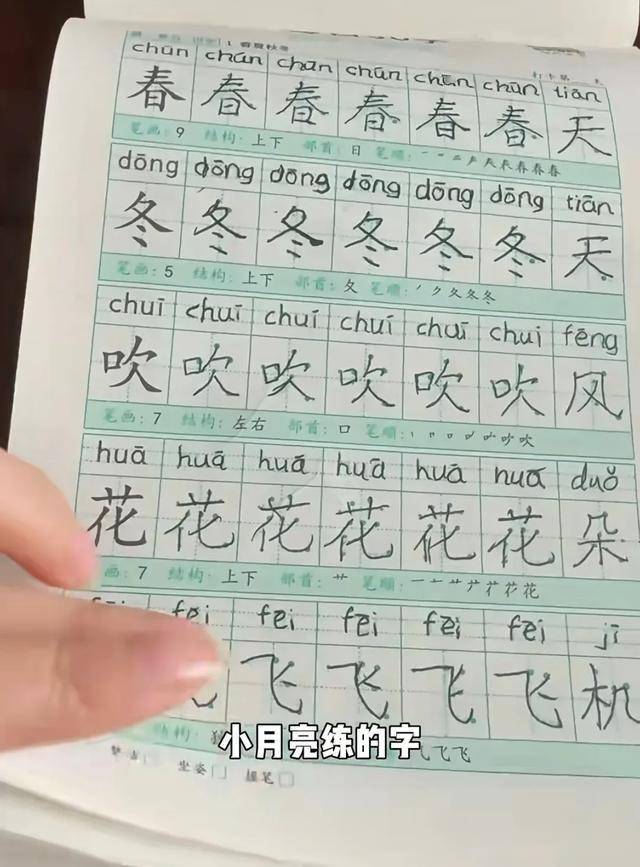 1 春夏秋冬
chūn chūn chūn chūn chūn chūn tiān
春 春 春 春 春 春 天
笔画: 9 结构: 上下 部首: 日 笔顺:
dōng dōng dōng dōng dōng dōng tiān
冬 冬 冬 冬 冬 冬 天
笔画: 5 结构: 上下 部首: 夂 笔顺: ノ ク 夂 冬 冬
chuī chuī chuī chuī chuī chui fēng
吹 吹 吹 吹 吹 吹 风
笔画: 7 结构: 左右 部首: 口 笔顺:
huā huā huā huā huā huā duǒ
花 花 花 花 花 花 朵
画: 7 结构: 上下 部首: 艹 笔顺:
fēi fēi fēi fēi fēi jī
飞 飞 飞 飞 飞 机
结构: 独
小月亮练的字
飞 飞
坐姿 握笔